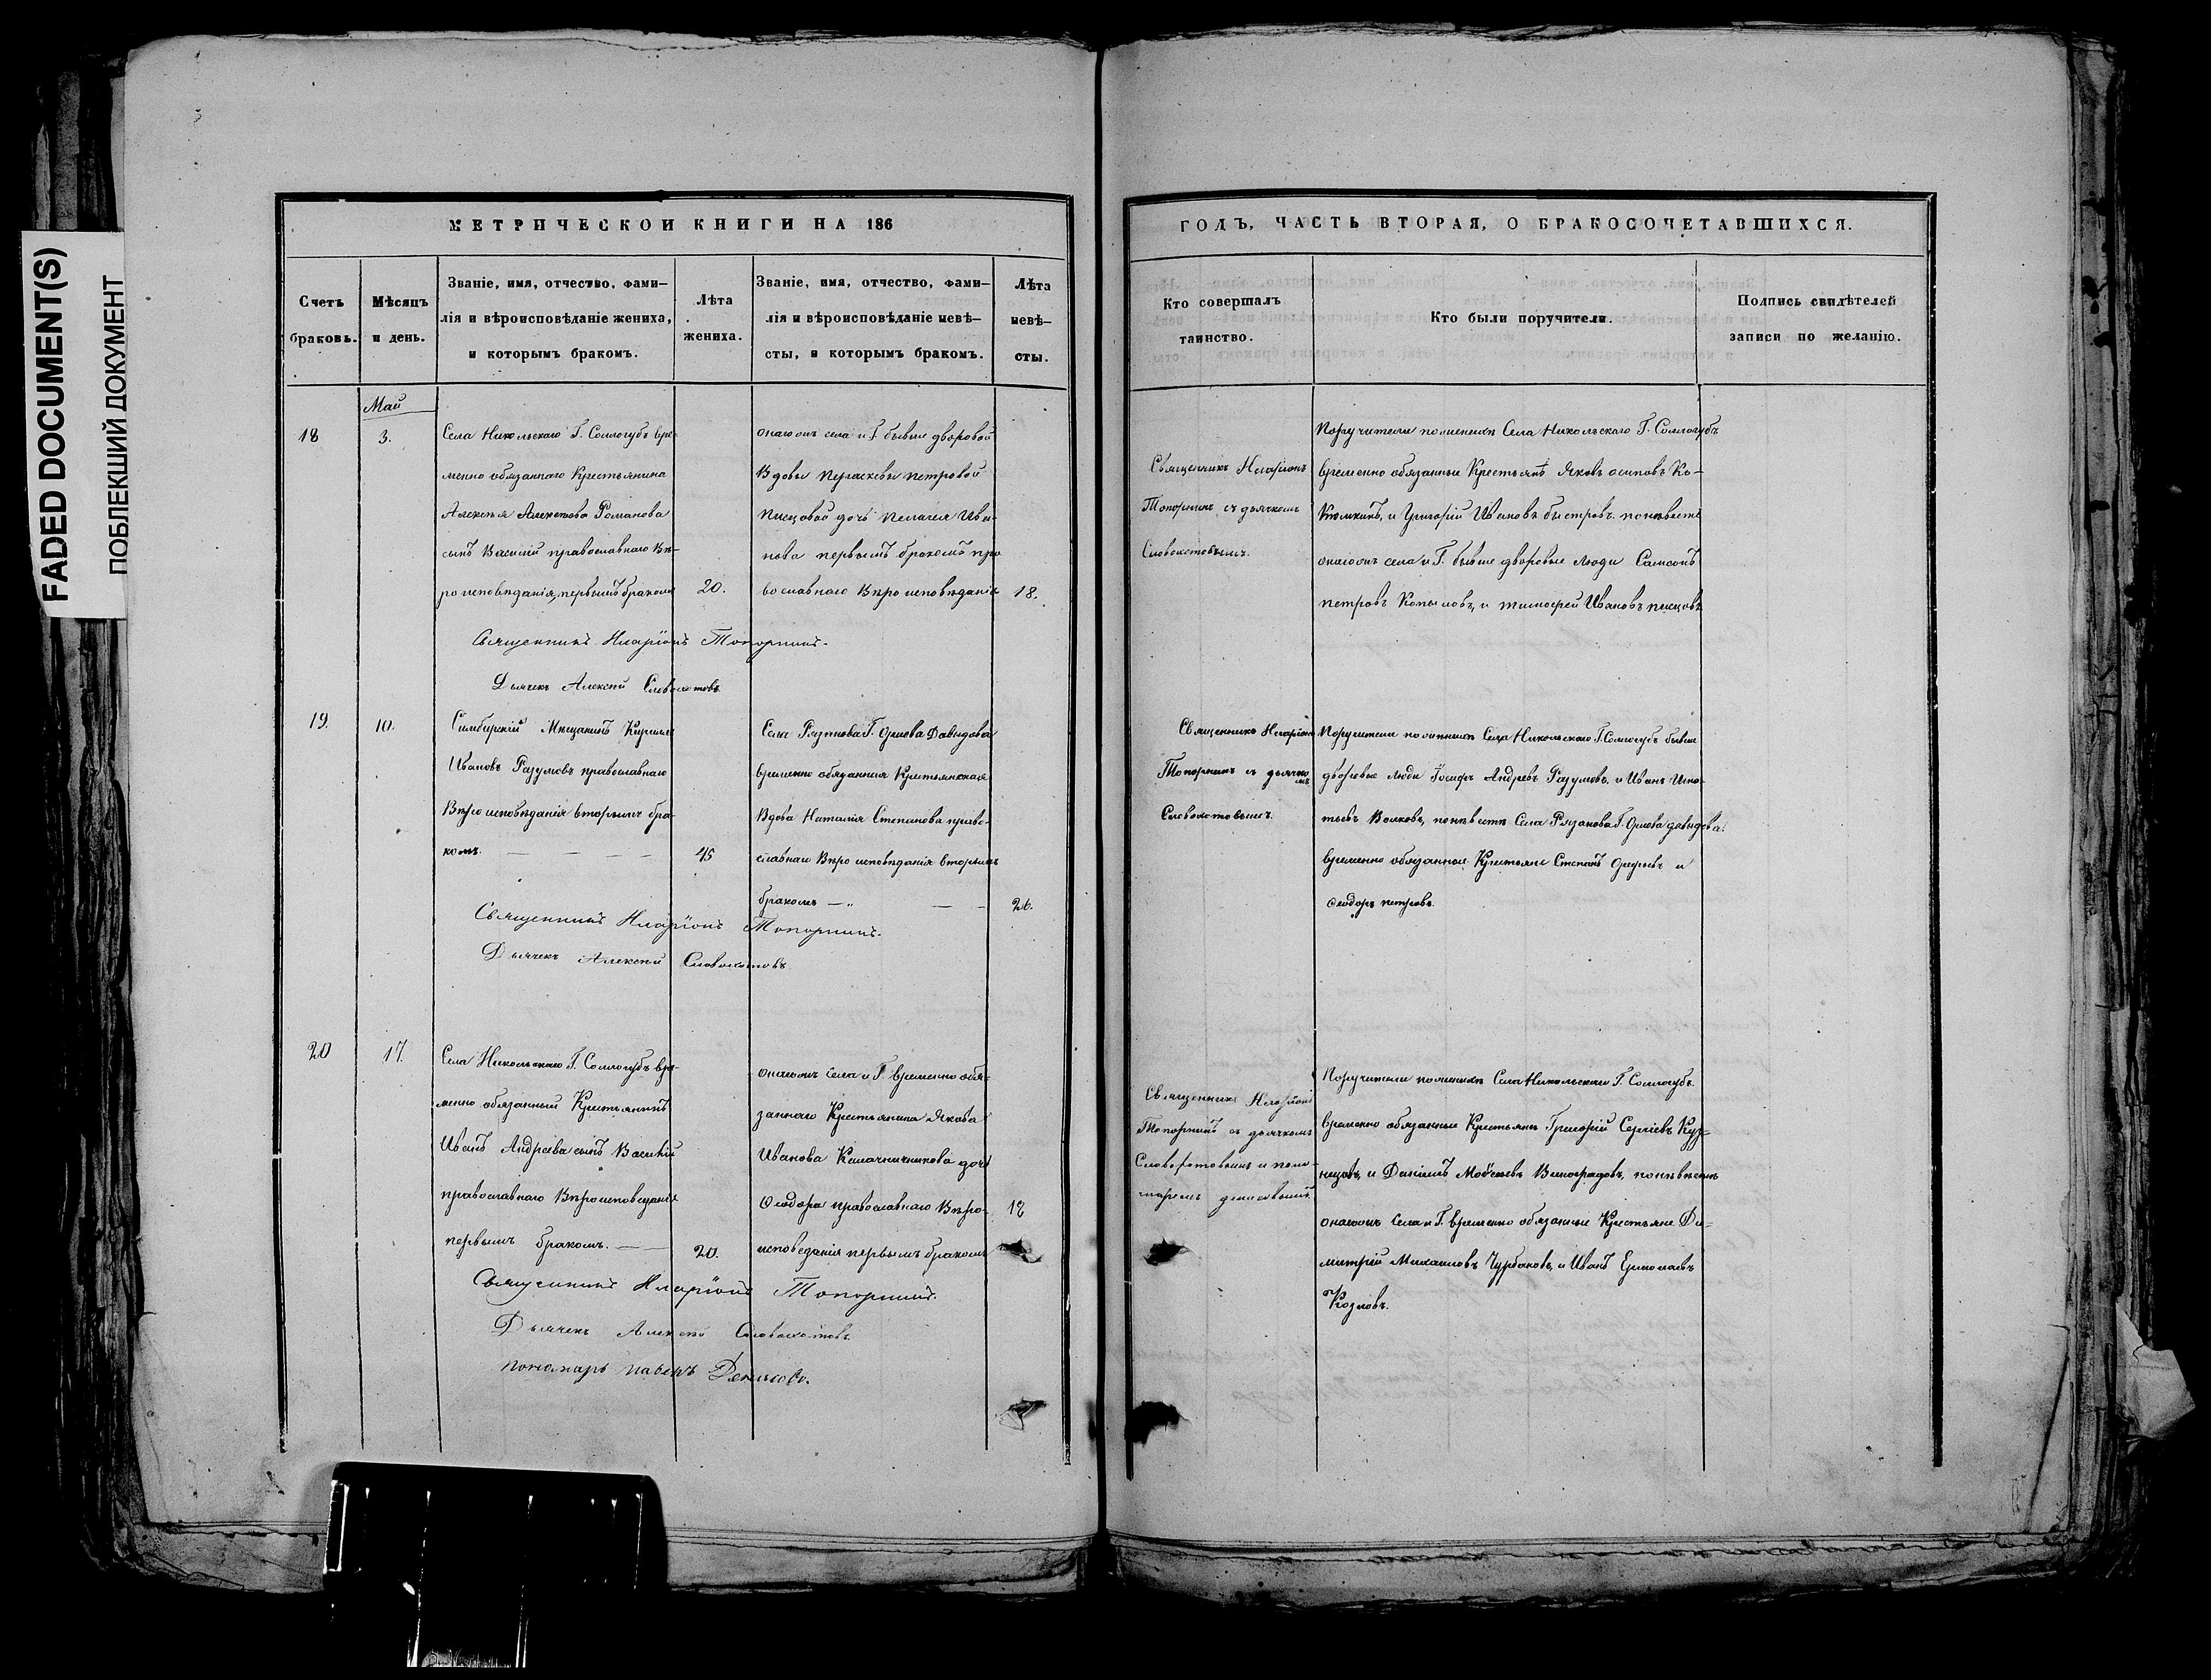 FADED DOCUMENT(S)
ПОБЛЕКШИЙ ДОКУМЕНТ
МЕТРИЧЕСКОЙ КНИГИ НА 186
Счетъ
браковъ.
Мѣсяцъ
и день.
Званіе, имя, отчество, фами-
лія и вѣроисповѣданіе жениха,
и которымъ бракомъ.
Лѣта
жениха.
Званіе, имя, отчество, фами-
лія и вѣроисповѣданіе невѣ-
сты, и которымъ бракомъ.
Лѣта
невѣ-
сты.
Май
18
3.
Села Никольскаго Г. Соллогубъ вре-
менно обязаннаго Крестьянина
Алексѣя Алексѣева Романова
сынъ Василій православнаго Вѣ-
ро исповѣданія, первымъ бракомъ
20.
онагожъ села и Г бывше дворовой
Вдовы Пераскевы петровой
писцовой дочь Пелагея Ива-
нова первымъ бракомъ пра
вославнаго Вѣро исповѣданія
18.
Священникъ Иларіонъ Топорнинъ.
Дьячекъ Алексѣй Словохотовъ
19.
10.
Симбирскій Мѣщанинъ Кирилъ
Ивановъ Разумовъ православнаго
Вѣро исповѣданія вторымъ бра-
комъ.
45
Села Рязанова Г. Орлова Давыдова
временно обязанная Крестьянская
Вдова Наталія Степанова право-
славнаго Вѣро исповѣданія вторымъ
бракомъ
26.
Священникъ Иларіонъ Топорнинъ.
Дьячекъ Алексѣй Словохотовъ.
20
17.
Села Никольскаго Г. Соллогубъ вре-
менно обязанный Крестьянинъ
Иванъ Андреева сынъ Василій
православнаго Вѣроисповеданія
первымъ бракомъ.
20.
онагожъ села и Г временно обя-
заннаго Крестьянина Якова
Иванова Калачничникова дочь
Ѳеодора православнаго Вѣро-
исповеданія первымъ бракомъ
18
Священникъ Иларіонъ Топорнинъ.
Дьячекъ Алексѣй Словохотовъ
пономарь павелъ Денисовъ.
ГОДЪ, ЧАСТЬ ВТОРАЯ, О БРАКОСОЧЕТАВШИХСЯ.
Кто совершалъ
таинство.
Кто были поручители.
Подпись свидѣтелей
записи по желанію.
Священникъ Иларіонъ
Топорнинъ съ дьячкомъ
Словохотовымъ.
Поручители по женихѣ Села Никольскаго Г. Соллогубъ
временно обязанные Крестьянѣ Яковъ осиповъ Ко-
и Григорій Ивановъ быстровъ. по невѣстѣ
онагожъ села и Г. бывше дворовые люди Самсонъ
петровъ Копыловъ, и тимофей Ивановъ писцовъ
Священникъ Иларіонъ
Топорнинъ съ дьячко
мъ
Словохотовымъ.
Поручители по женихѣ Села Никольскаго Г. Соллогубъ бывше
дворовые люди Іосифъ Андреевъ Разумовъ, и Иванъ Игна-
тьевъ Волковъ, по невѣстѣ Села Рязанова Г. Орлова давыдова.
временно обязанные Крестьяне Степанъ и
Ѳеодоръ петровъ.
Священникъ Иларіонъ
Топорнинъ съ дьячкомъ
Словохотовымъ и поно-
маремъ денисовымъ.
Поручители по женихѣ Села Никольскаго Г. Соллогубъ.
временно обязанные Крестьянѣ Григорій Сергіевъ Куз-
нецовъ, и Даніилъ Моѵсеевъ Виноградовъ, по невѣстѣ
онагожъ Села и Г. временно обязанные Крестьяне Ди-
митрій Михаиловъ Чурбановъ, и Иванъ Ермолаевъ
Козловъ.